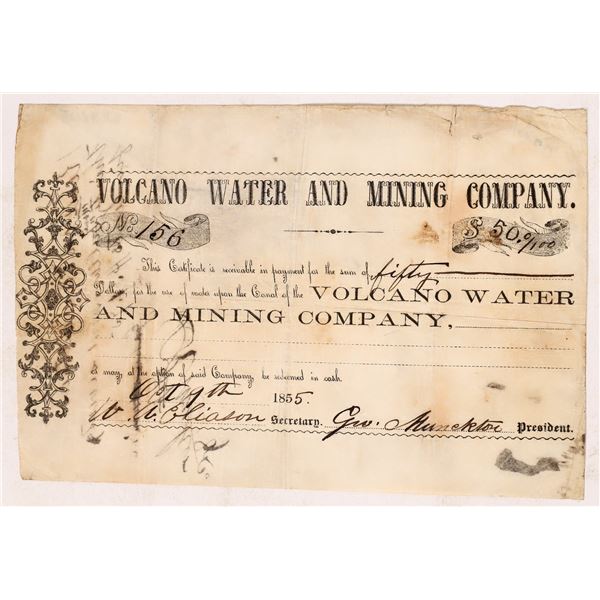 VOLCANO WATER AND MINING COMPANY.
No. 156 $50.0/100
This Certificate is receivable in payment for the sum of fifty
Dollars for the use of water upon the Canal of the VOLCANO WATER
AND MINING COMPANY,
& may, at the option of said Company, be redeemed in cash.
Oct 9th 1855.
Eliason Secretary. Geo. Munckton President.